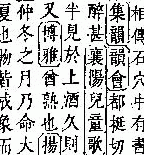 相傳石穴中有書
集韻韻會都挺切
醉甚襄陽兒童歌
半見於上酒熟則
又博雅酋熟也揚
仲冬之月乃命大
夏也物皆成象而